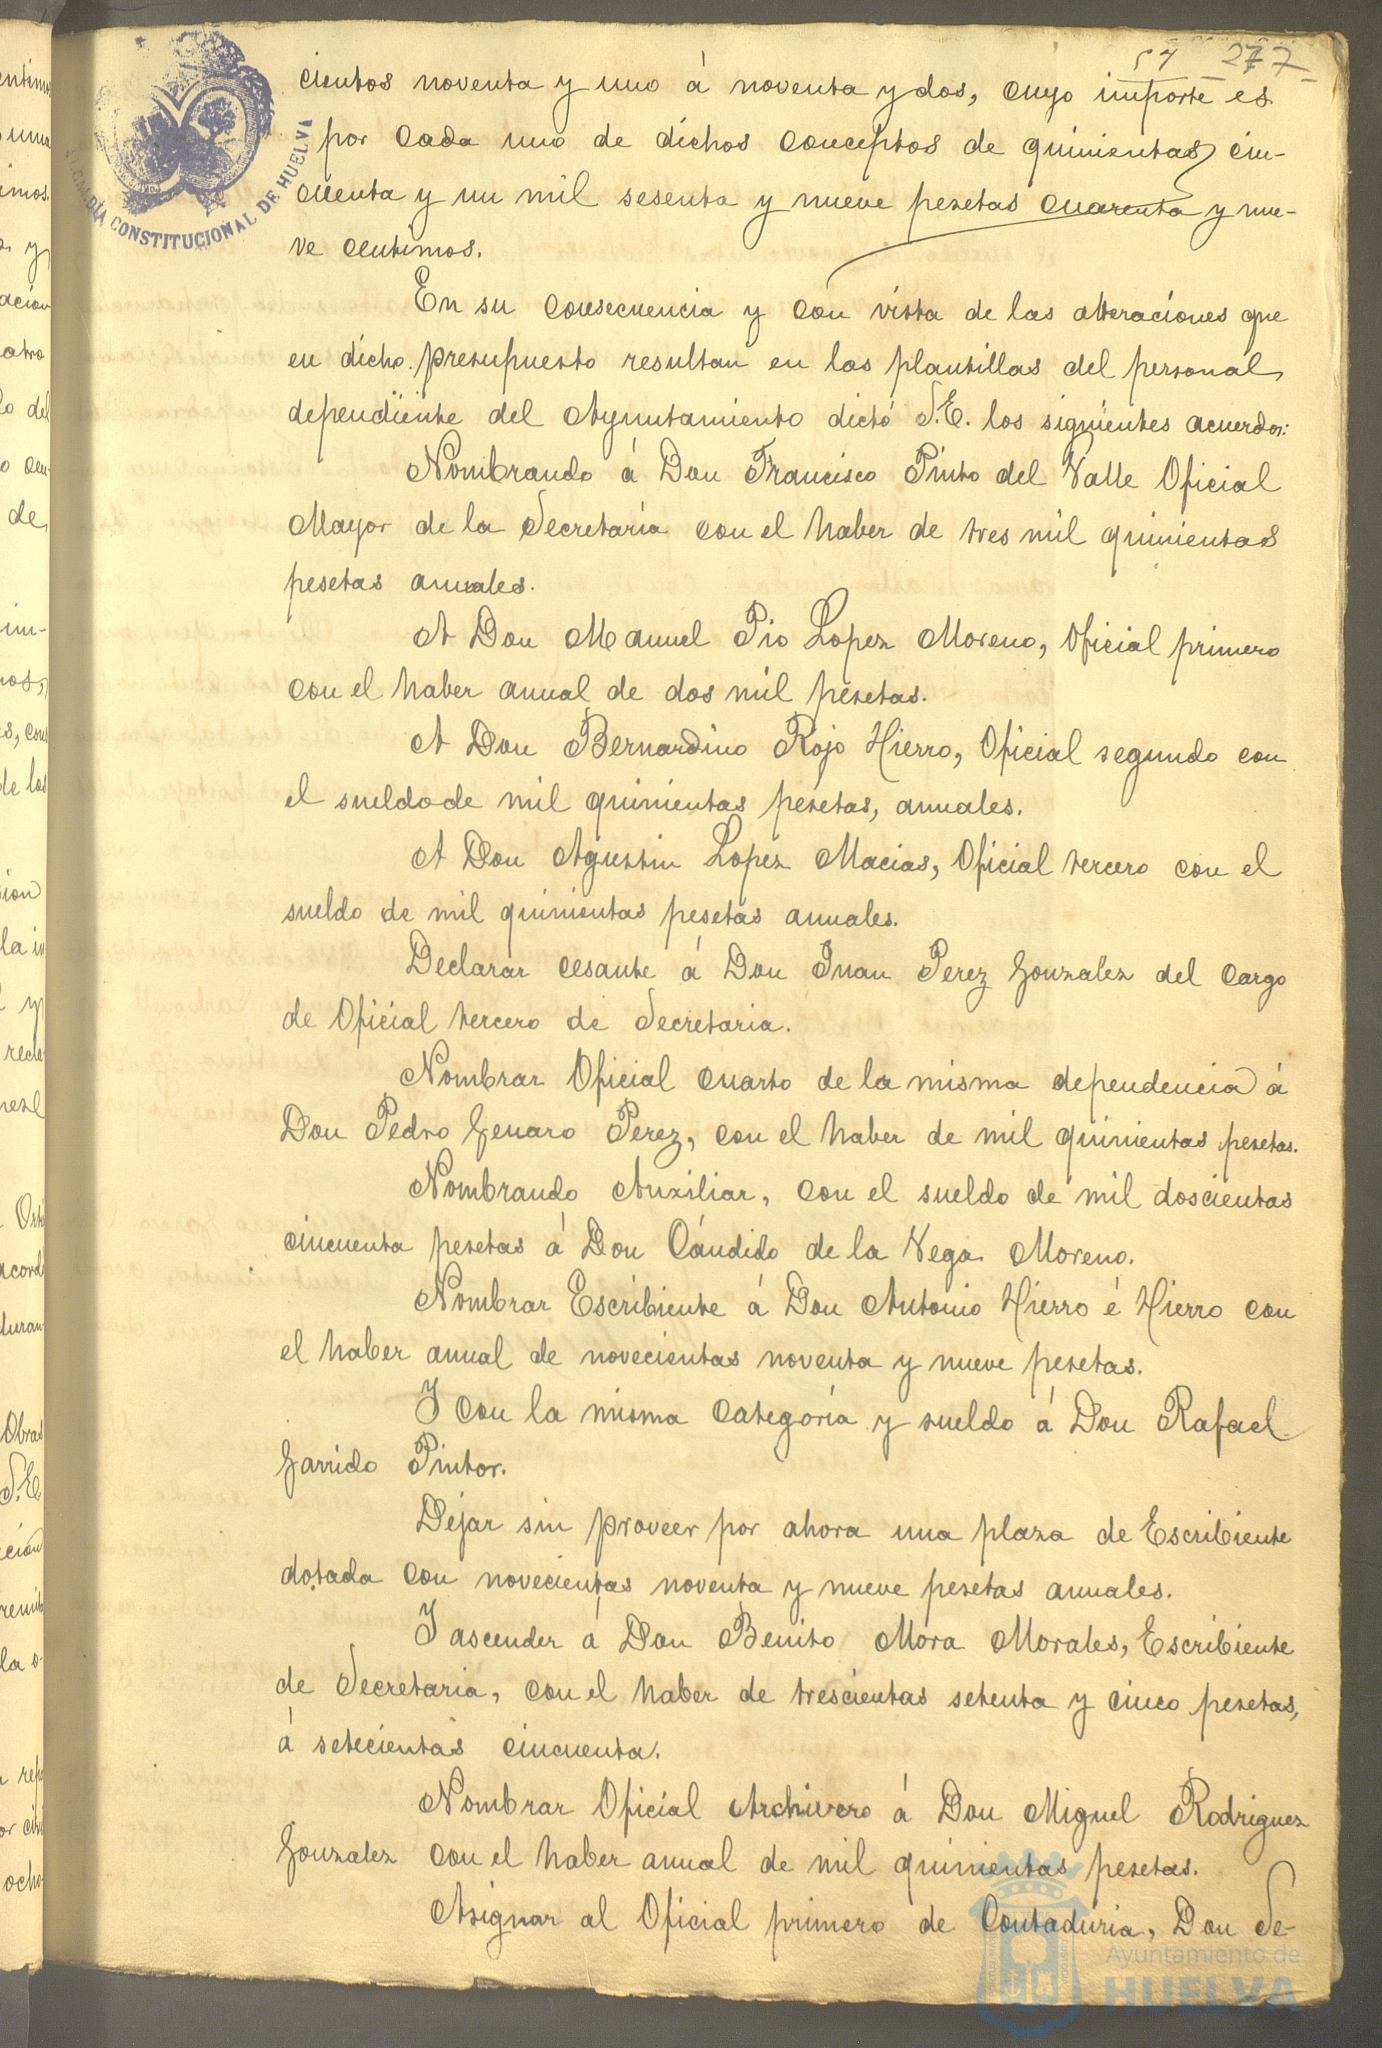 277
cientos noventa y uno á noventa y dos, cuyo importe es
por cada uno de dichos conceptos de quinientas cin-
cuenta y un mil sesenta y nueve pesetas cuarenta y nue-
ve centimos.
En su consecuencia y con vista de las alteraciones que
en dicho presupuesto resultan en las plantillas del personal
dependiente del Ayuntamiento dictó S.E. los siguientes acuerdos:
Nombrando á Don Francisco Pinto del Valle Oficial
Mayor de la Secretaría con el haber de tres mil quinientas
pesetas anuales.
A Don Manuel Pio Lopez Moreno, Oficial primero
con el haber anual de dos mil pesetas.
A Don Bernardino Rojo Hierro, Oficial segundo con
el sueldo de mil quinientas pesetas, anuales.
A Don Agustin Lopez Macias, Oficial tercero con el
sueldo de mil quinientas pesetas anuales.
Declarar cesante á Don Juan Perez Gonzalez del cargo
de Oficial tercero de Secretaria.
Nombrar Oficial cuarto de la misma dependencia á
Don Pedro Genaro Perez, con el haber de mil quinientas pesetas.
Nombrando Auxiliar, con el sueldo de mil doscientas
cincuenta pesetas á Don Cándido de la Vega Moreno.
Nombrar Escribiente á Don Antonio Hierro é Hierro con
el haber anual de novecientas noventa y nueve pesetas.
Y con la misma categoría y sueldo á Don Rafael
Garrido Pintor.
Dejar sin proveer por ahora una plaza de Escribiente
dotada con novecientas noventa y nueve pesetas anuales.
Y ascender á Don Benito Mora Morales, Escribiente
de Secretaria, con el haber de trescientas setenta y cinco pesetas,
á setecientas cincuenta.
Nombrar Oficial Archivero á Don Miguel Rodriguez
Gonzalez con el haber anual de mil quinientas pesetas.
Asignar al Oficial primero de Contaduría, Don Se-
ALCALDÍA CONSTITUCIONAL DE HUELVA
Ayuntamiento de
HUELVA